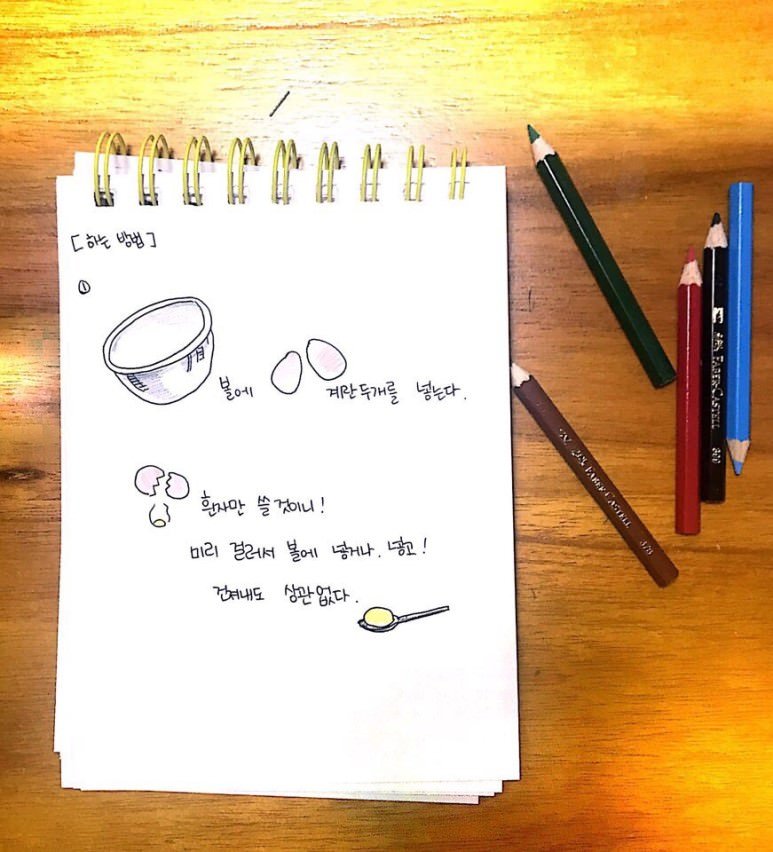 [하는 방법]
①
볼에 계란 두개를 넣는다.
흰자만 쓸 것이니!
미리 걸러서 볼에 넣거나. 넣고!
건져내도 상관없다.
FABER-CASTELL
FABER-CASTELL